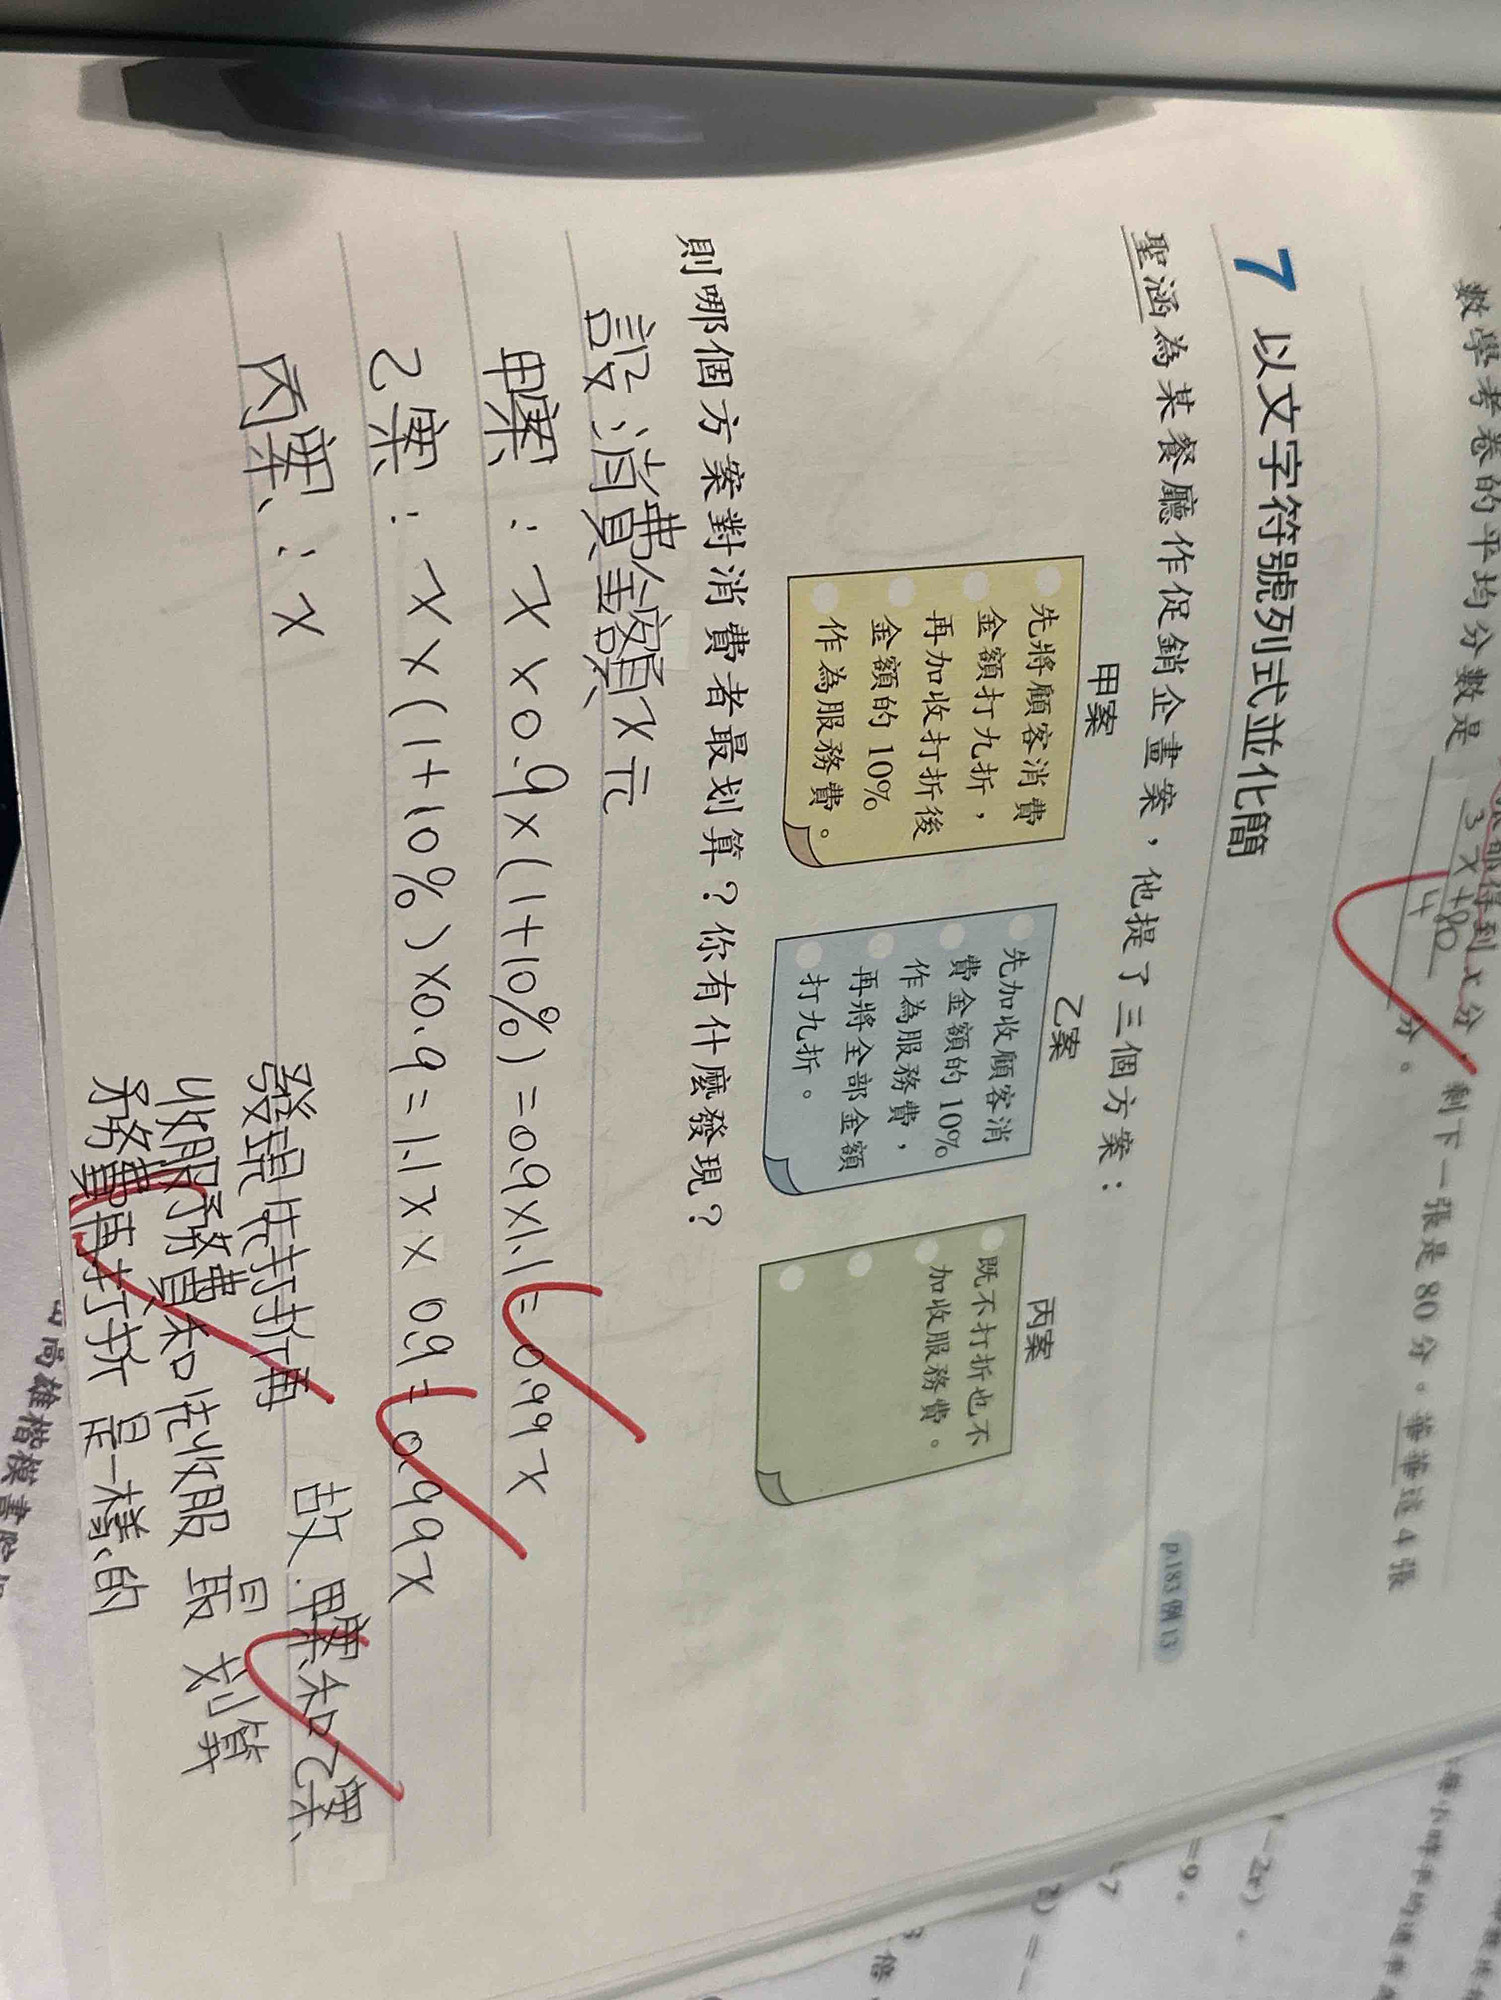 數學考卷的平均分數是 3x+80/4 分。
得到 x 分，剩下一張是 80 分。
4 張
7 以文字符號列式並化簡
p.183 例 13
聖涵為某餐廳作促銷企畫案，他提了三個方案：
甲案
先將顧客消費
金額打九折，
再加收打折後
金額的 10%
作為服務費。
乙案
先加收顧客消
費金額的 10%
作為服務費，
再將全部金額
打九折。
丙案
既不打折也不
加收服務費。
則哪個方案對消費者最划算？你有什麼發現？
設:消費金額x元
甲案：x×0.9×(1+10%)=0.9×1.1=0.99x
乙案：x×(1+10%)×0.9=1.1x×0.9=0.99x
丙案：x
故.甲案和乙案
最划算
發現先打折再
收服務費和先收服
務費再打折是一樣的